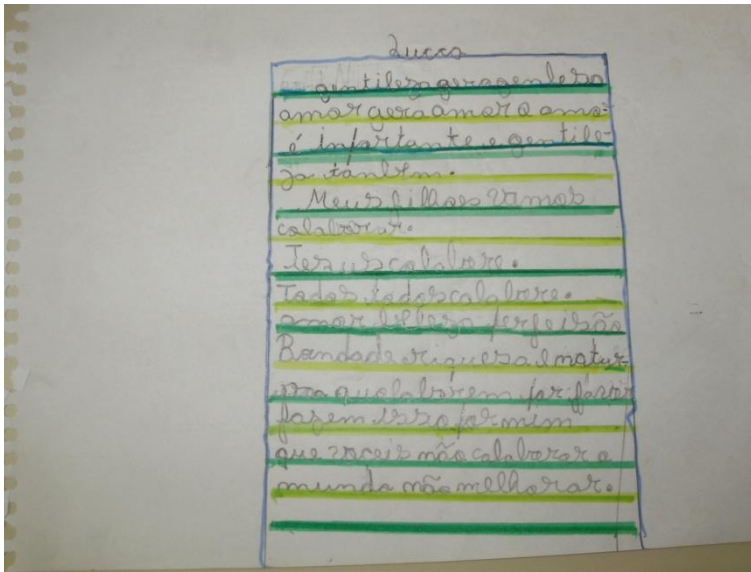 Lucca
gentileza gera genleza
amor gera amor o amo-
é infortante e gentile-
za tanbem.
Meus filhoes vamos
colaborar.
Jezus colabore.
Todos todos colabore.
amor belleza perfeisão
Bondade riqueza e natur-
que colaborem por favor
fazem isso por mim
que voceis não colaboror o
mundo não melhorar.